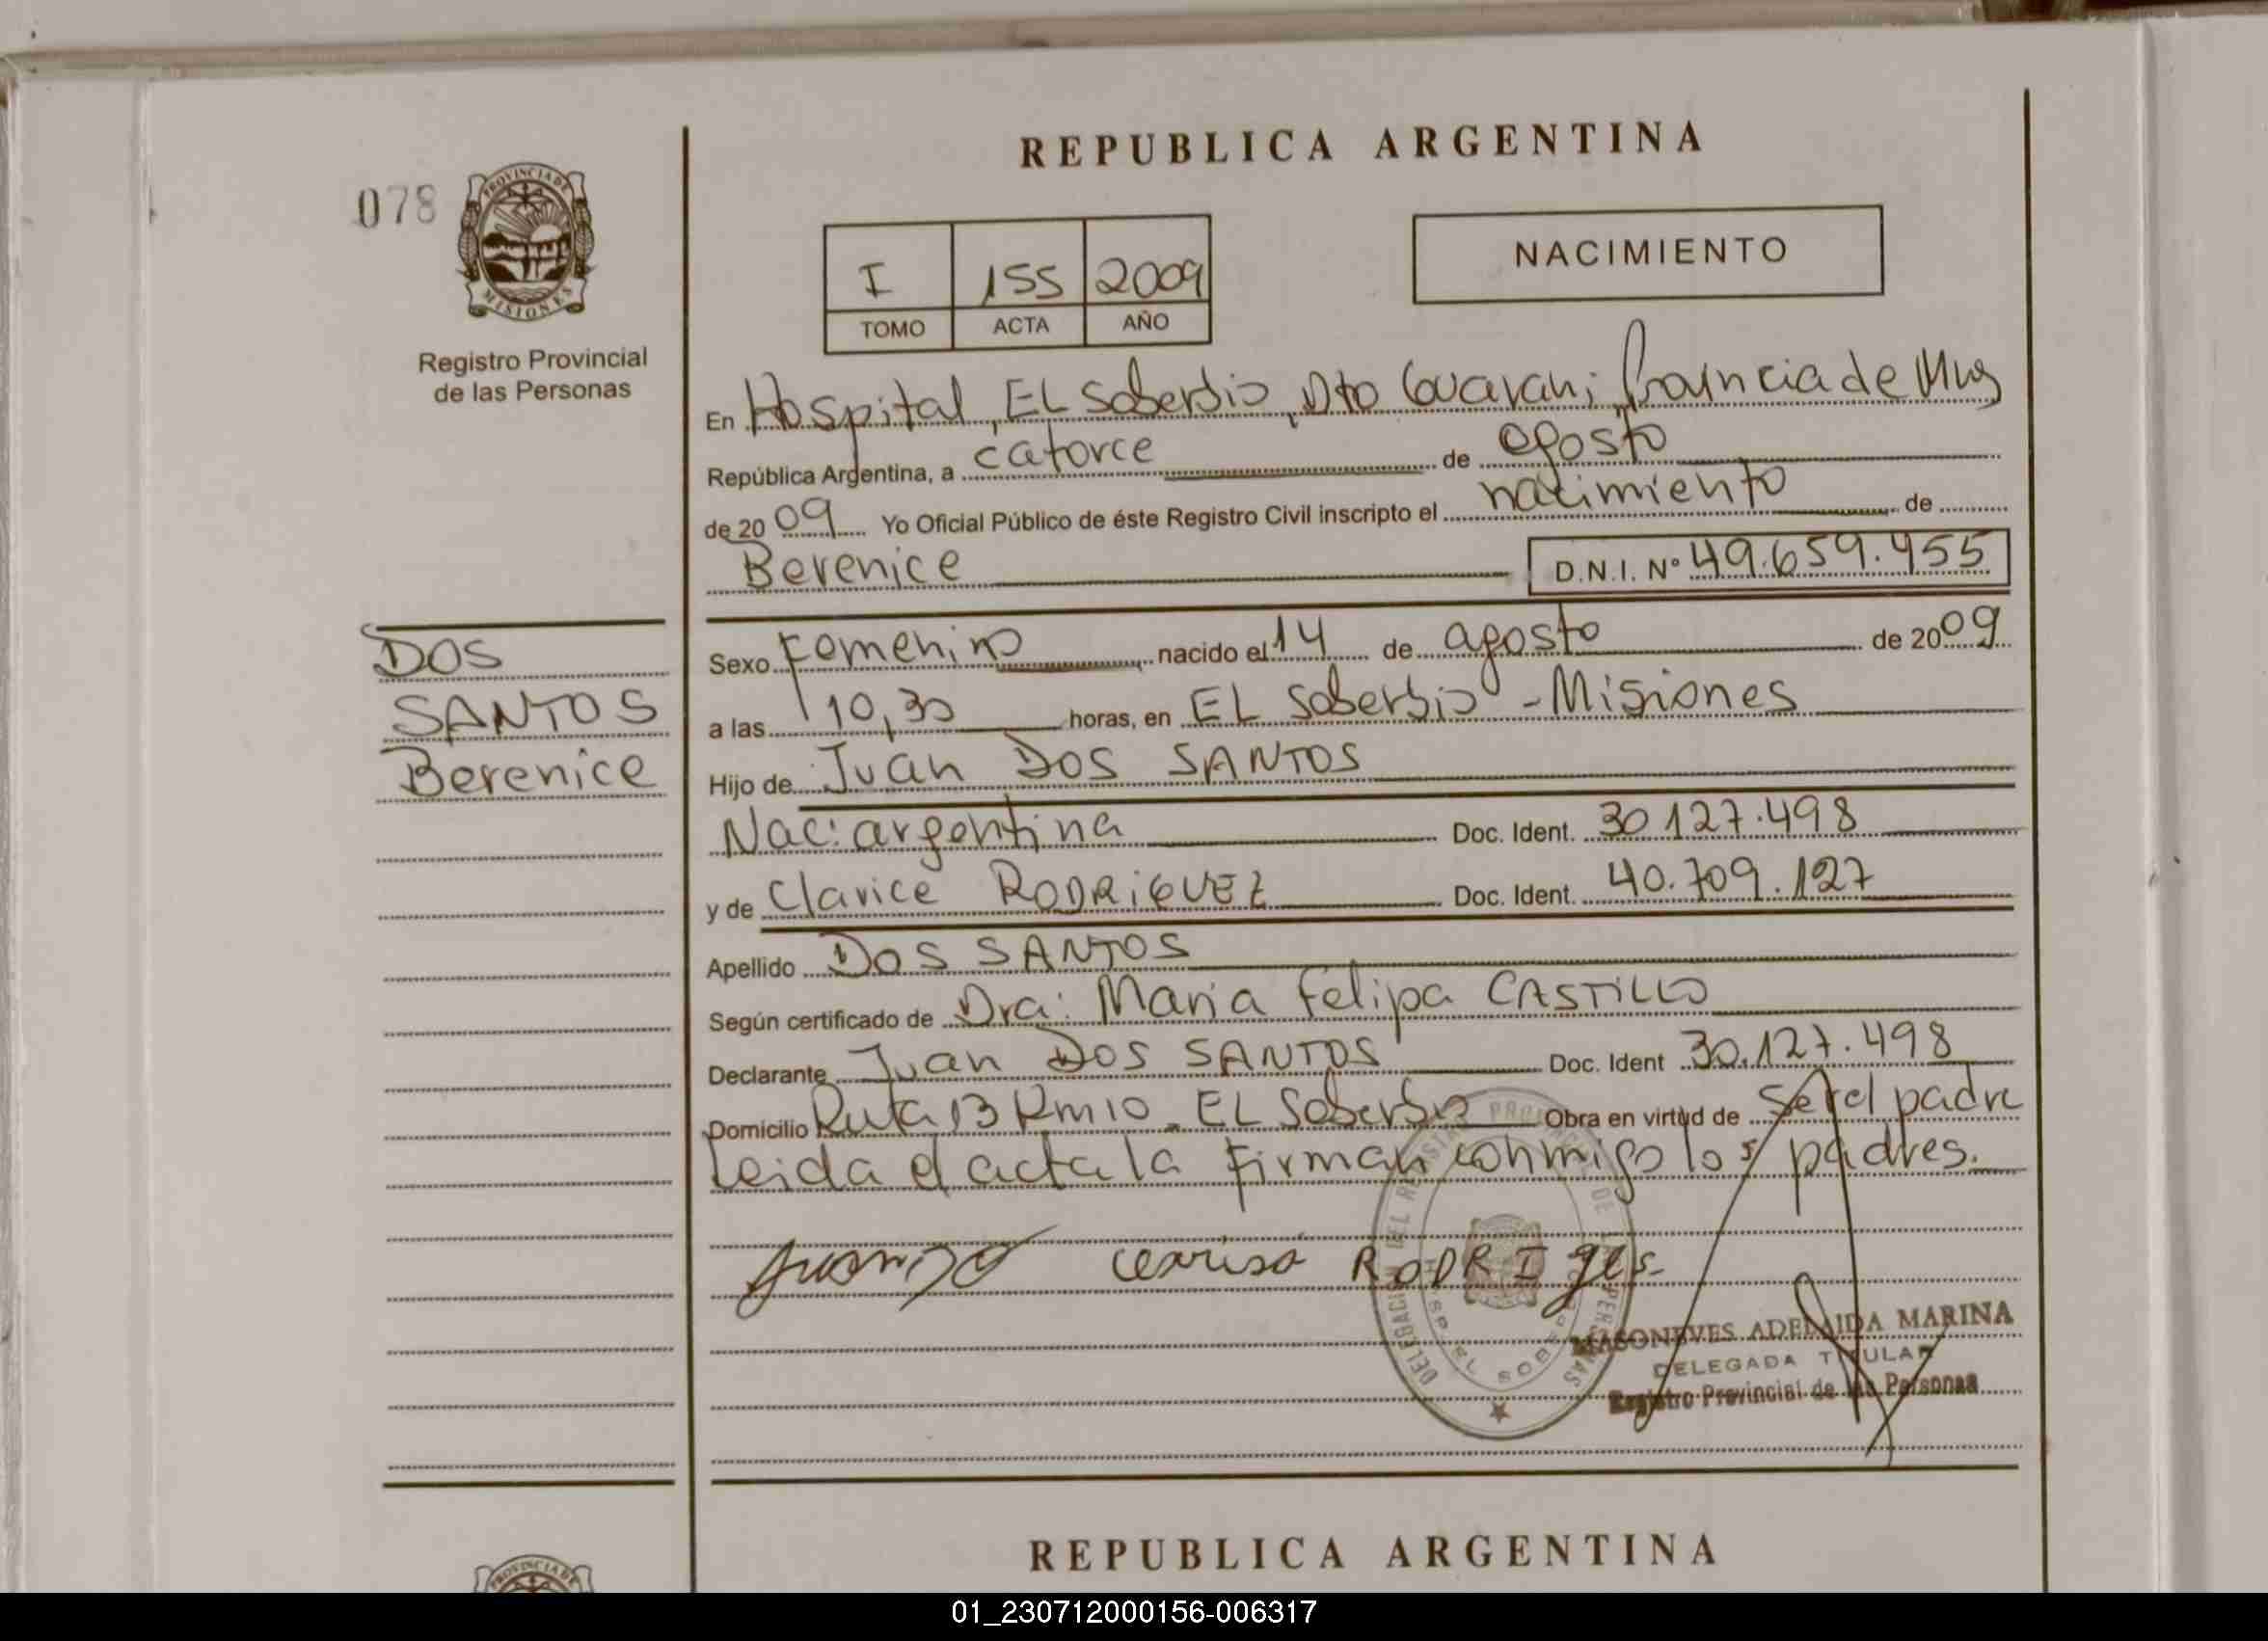 REPUBLICA ARGENTINA
078
PROVINCIA DE
MISIONES
Registro Provincial
de las Personas
I 155 2009
TOMO ACTA AÑO
NACIMIENTO
En Hospital, EL Soberbio, Dto Guarani, Provincia de Mnes
República Argentina, a catorce de agosto
de 2009 Yo Oficial Público de éste Registro Civil inscripto el nacimiento de
Berenice D.N.I. Nº 49.659.455
DOS
SANTOS
Berenice
Sexo Femenino nacido el 14 de agosto de 2009
a las 10,30 horas, en EL Soberbio - Misiones
Hijo de Juan DOS SANTOS
Nac: argentina Doc. Ident. 30.127.498
y de Clarice RODRIGUEZ Doc. Ident. 40.709.127
Apellido DOS SANTOS
Según certificado de Dra: Maria Felipa CASTILLO
Declarante Juan DOS SANTOS Doc. Ident 30.127.498
Domicilio Ruta 13 Km 10 - EL Soberbio Obra en virtud de ser el padre
Leida el acta la firman conmigo los padres.
RODRIges
DELEGACION DEL REGISTRO PROVINCIAL DE LAS PERSONAS
HOSP. EL SOBERBIO
MASONEVES ADELAIDA MARINA
DELEGADA TITULAR
Registro Provincial de las Personas
REPUBLICA ARGENTINA
PROVINCIA DE
01_230712000156-006317